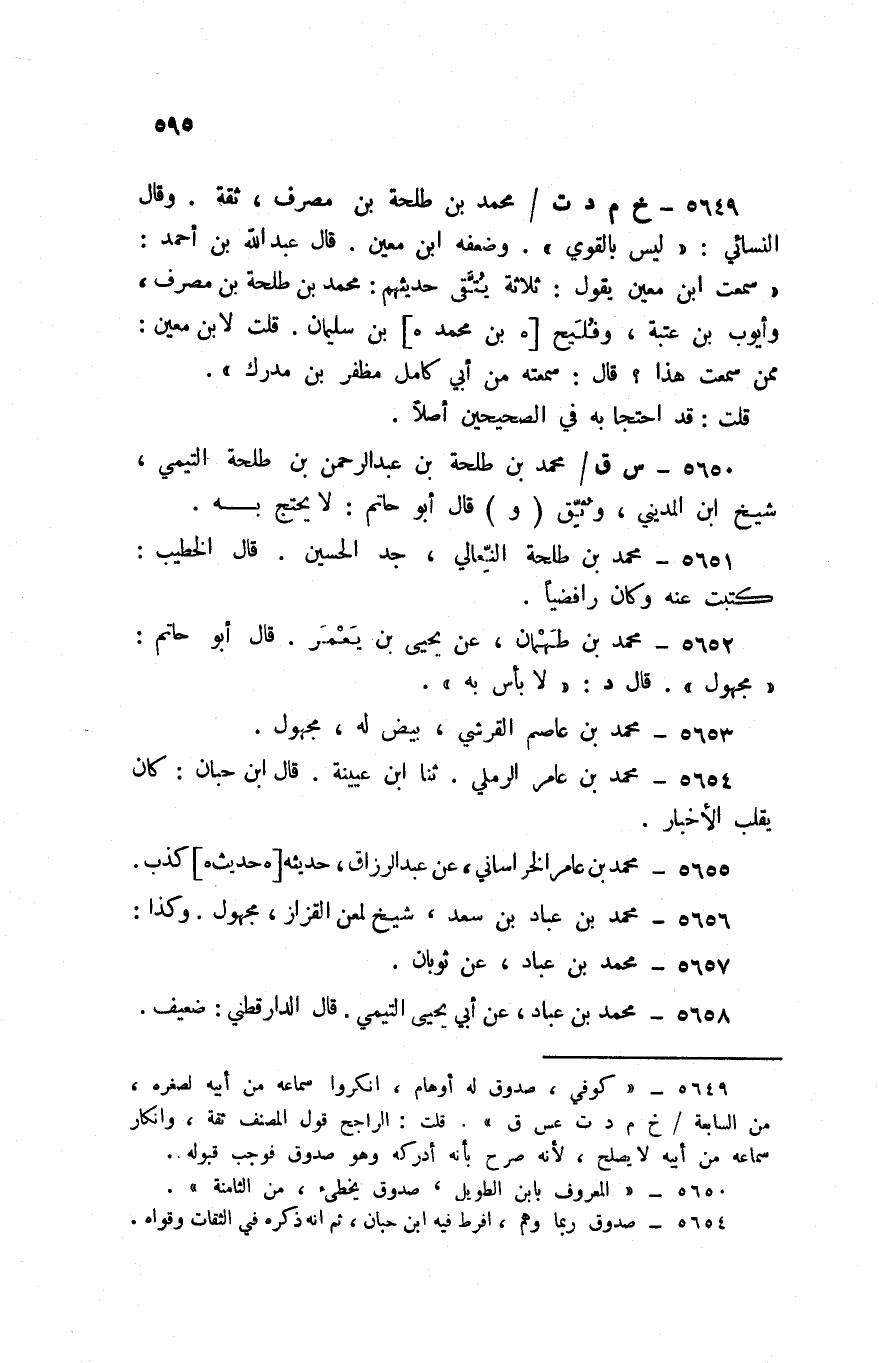 ٥٩٥
٥٦٤٩ – خ م د ت / محمد بن طلحة بن مصرف ، ثقة . وقال
النسائي : « ليس بالقوي » . وضعفه ابن معين . قال عبدالله بن أحمد :
« سمعت ابن معين يقول : ثلاثة يُتَّقى حديثهم : محمد بن طلحة بن مصرف ،
وأيوب بن عتبة ، وفُلَيح [ه بن محمد ه] بن سليمان . قلت لابن معين :
ممن سمعت هذا ؟ قال : سمعته من أبي كامل مظفر بن مدرك » .
قلت : قد احتجا به في الصحيحين أصلاً .
٥٦٥٠ – س ق / محمد بن طلحة بن عبدالرحمن بن طلحة التيمي ،
شيخ ابن المديني ، وثّق ( و ) قال أبو حاتم : لا يحتج بـــه .
٥٦٥١ – محمد بن طلحة النّعالي ، جد الحسين . قال الخطيب :
كتبت عنه وكان رافضياً .
٥٦٥٢ – محمد بن طَهْمان ، عن يحيى بن يَعْمَر . قال أبو حاتم :
« مجهول » . قال د : « لا بأس به » .
٥٦٥٣ – محمد بن عاصم القرشي ، بيض له ، مجهول .
٥٦٥٤ – محمد بن عامر الرملي . ثنا ابن عيينة . قال ابن حبان : كان
يقلب الأخبار .
٥٦٥٥ – محمد بن عامر الخراساني ، عن عبدالرزاق ، حديثه [ه حديث ه] كذب .
٥٦٥٦ – محمد بن عباد بن سعد ، شيخ لمعن القزاز ، مجهول . وكذا :
٥٦٥٧ – محمد بن عباد ، عن ثوبان .
٥٦٥٨ – محمد بن عباد ، عن أبي يحيى التيمي . قال الدارقطني : ضعيف .
٥٦٤٩ – « كوفي ، صدوق له أوهام ، انكروا سماعه من أبيه لصغره ،
من السابعة / خ م د ت عس ق » . قلت : الراجح قول المصنف ثقة ، وانكار
سماعه من أبيه لا يصلح ، لأنه صرح بأنه أدركه وهو صدوق فوجب قبوله ..
٥٦٥٠ – « المعروف بابن الطويل ، صدوق يخطىء ، من الثامنة » .
٥٦٥٤ – صدوق ربما وهم ، افرط فيه ابن حبان ، ثم انه ذكره في الثقات وقواه .